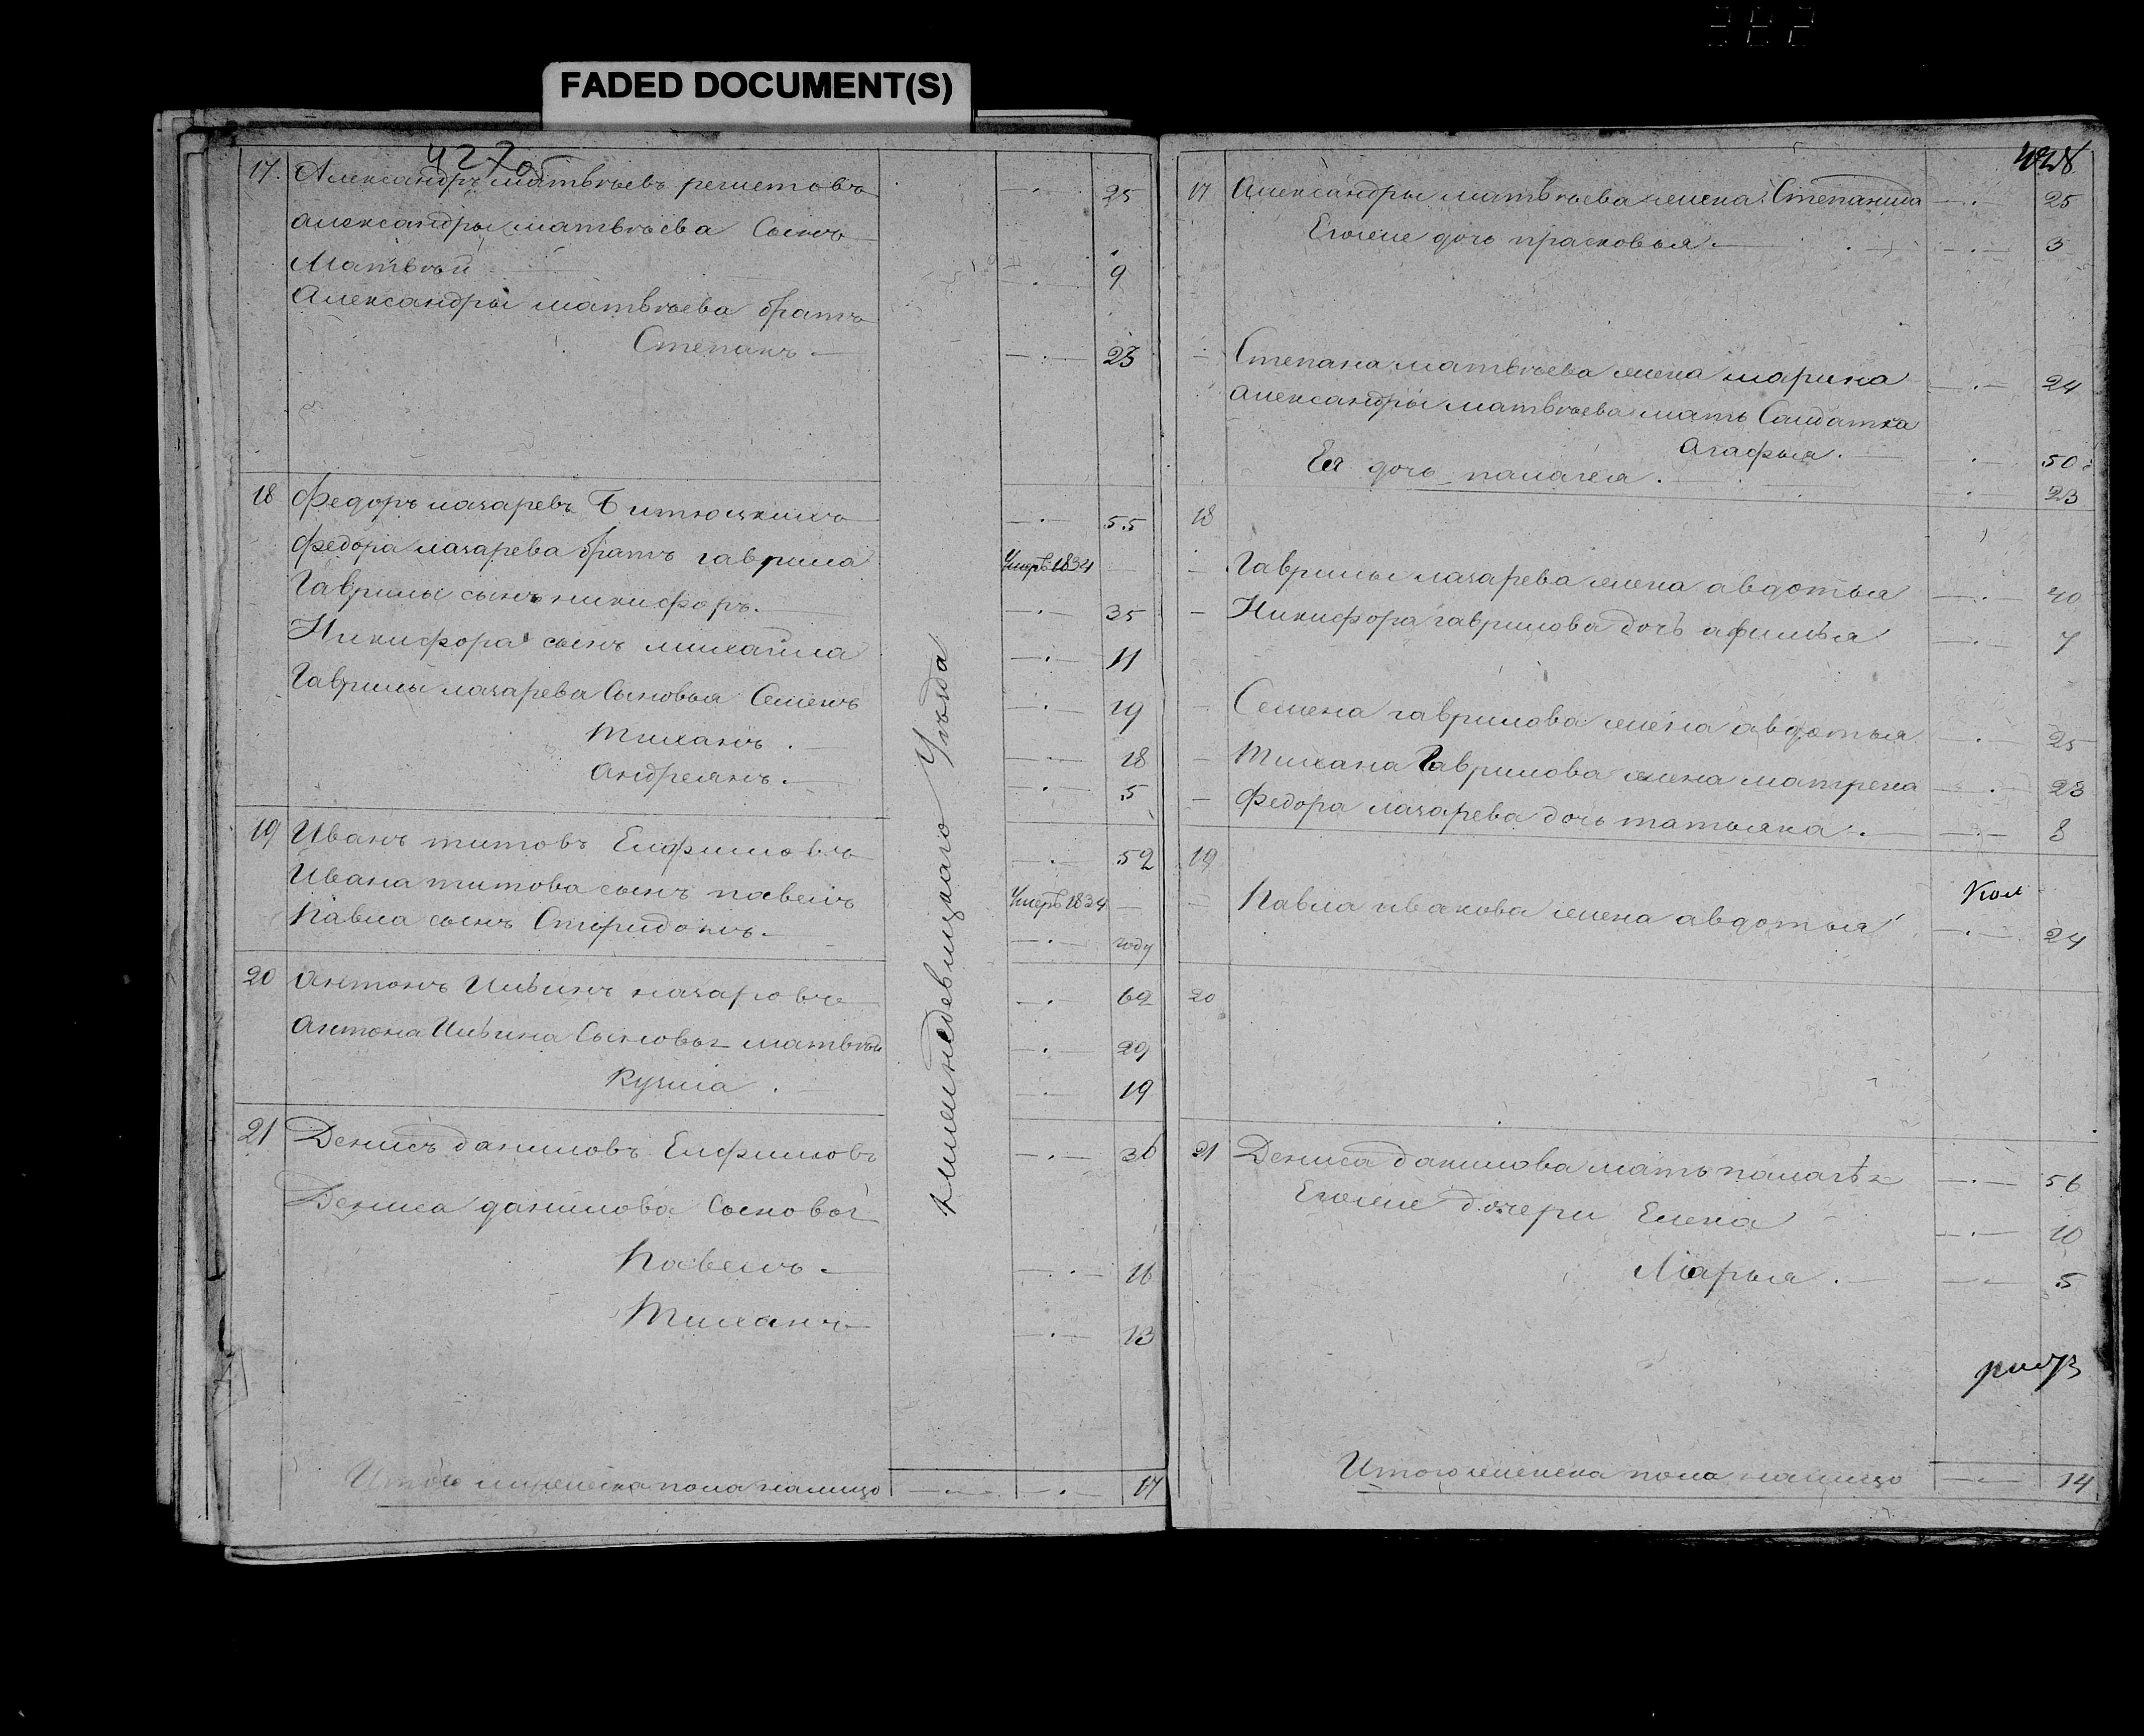 FADED DOCUMENT(S)
427об
17. Александръ матвѣевъ решетовъ — 25
александры матвѣева Сынъ
Матвѣй — 9
Александры матвѣева братъ
Степанъ — 23
18 Федоръ лазаревъ Битюцкихъ — 55
Федора лазарева братъ гаврила Умеръ 1834 —
Гаврилы сынъ никифоръ. — 35
Никифора сынъ михайла — 11
Гаврилы лазарева Сыновья Семенъ — 19
Тиханъ. — 18
Андреянъ. — 5
19 Иванъ титовъ Елфимовъ — 52
Ивана титова сынъ павелъ Умеръ 1834 —
Павла сынъ Спиридонъ. — году
20 Антонъ Ильинъ назаровъ — 62
Антона Ильина Сыновья матвѣй — 29
Кузма. — 19
21 Денисъ даниловъ Елфимовъ — 36
Дениса данилова Сыновья
Павелъ — 16
Тиханъ — 13
Итого мужеска пола налицо — 17
нижнедѣвицкаго Уѣзда
428
17 Александры матвѣева жена Степанида — 25
Егоже дочь прасковья. — 3
Степана матвѣева жена марина — 24
Александры матвѣева мать Салдатка
Агафья. — 50
Ея дочь палагея. — 23
18
Гаврилы лазарева жена авдотья — 40
Никифора гаврилова дочь афимья — 7
Семена гаврилова жена авдотья — 25
Тихана Гаврилова жена матрена — 23
Федора лазарева дочь татьяна. — 8
19
Павла иванова жена авдотья — 24
20
21 Дениса данилова мать палагѣя — 56
Егоже дочери Елена — 10
Марья. — 5
Итого женска пола налицо — 14